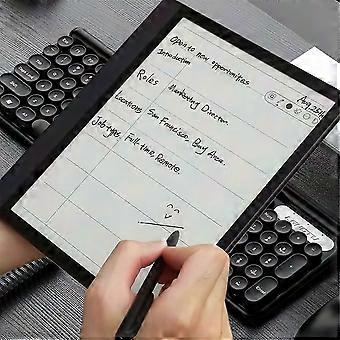 Open to new opportunities
Introduction
Aug 25th
Roles: Marketing Director.
Locations: San Francisco, Bay Area.
Job types: Full-time, Remote.